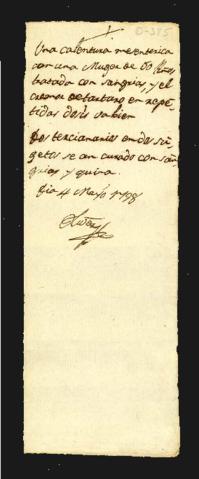 D-385
Una calentura mesenterica
con una Muger de 60 años
tratada con sangrias, y el
cremor de tartaro en repe-
tidas dosis va bien
Dos tercianarios en dos su-
getos se an curado con san-
grias y quina.
dia 4 Mayo 1798